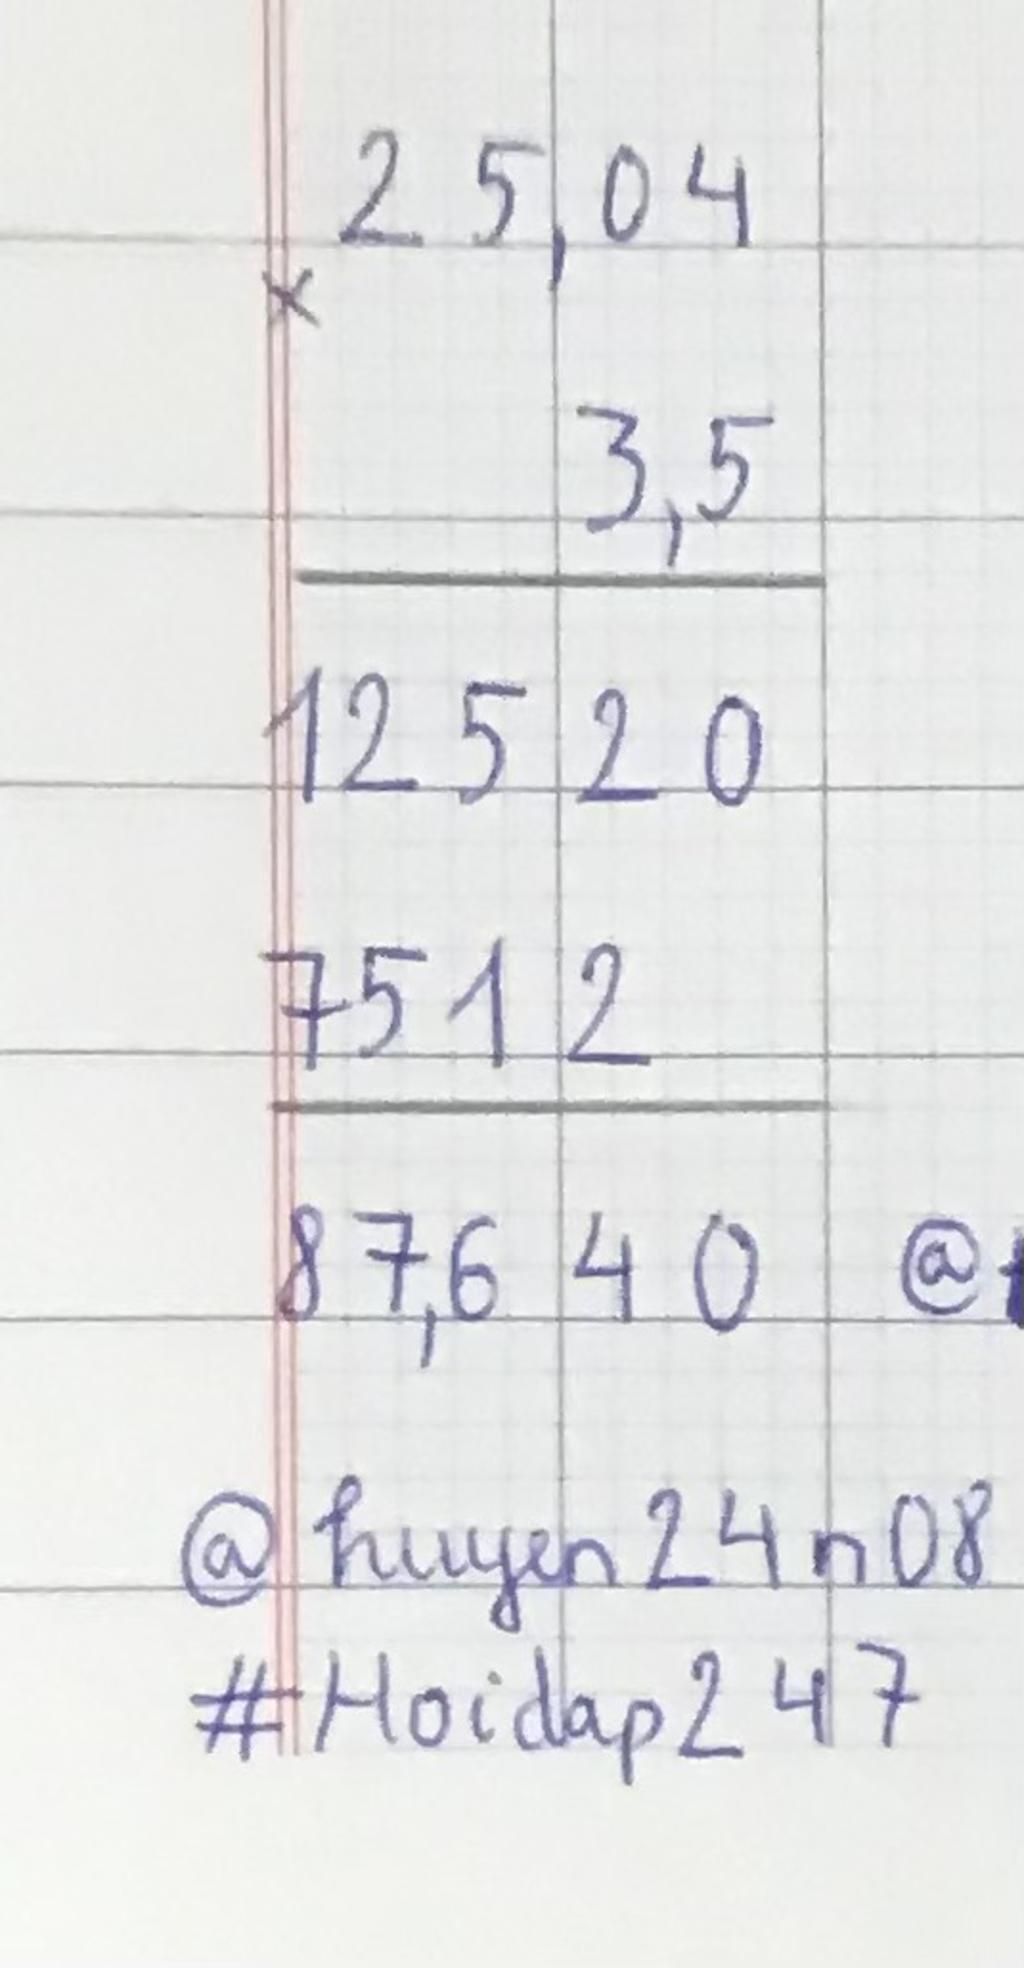 25,04
×
3,5
12520
7512
87,640 @
@huyen24n08
#Hoidap247